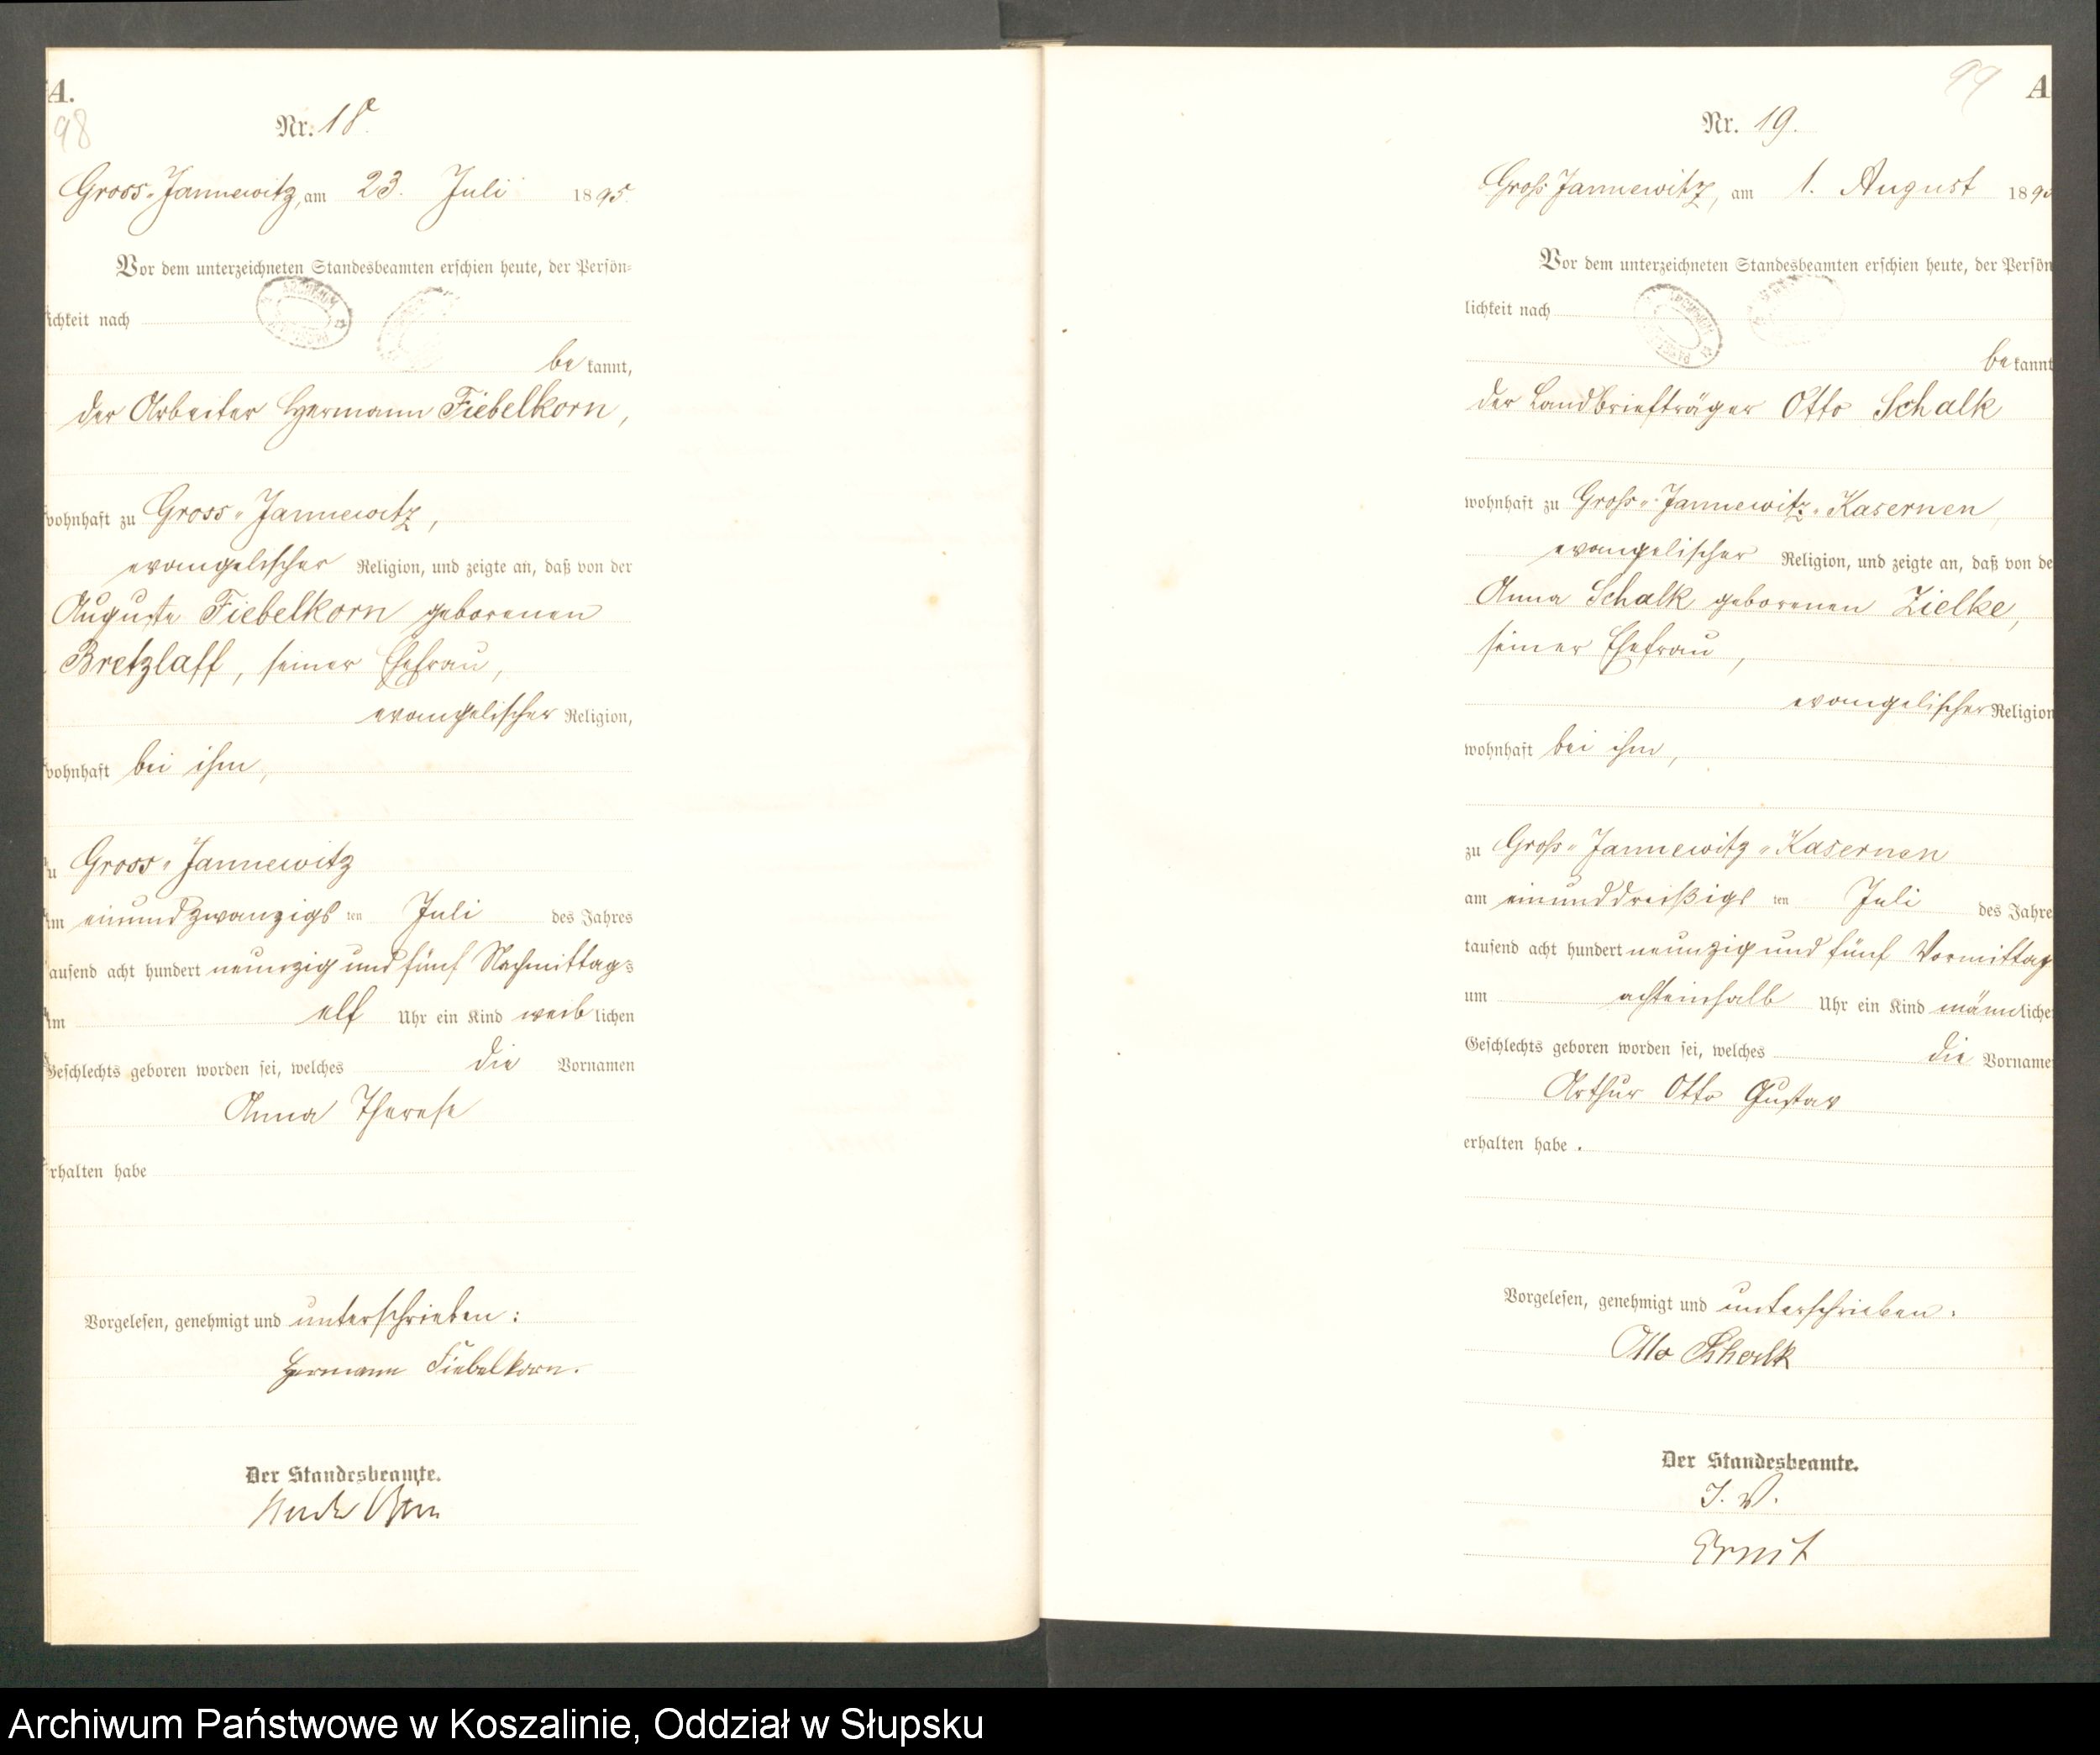 A.
98
Nr. 18.
Gross-Jannewitz, am 23. Juli 1895.
Vor dem unterzeichneten Standesbeamten erschien heute, der Persön-
ichkeit nach
be kannt,
der Arbeiter Hermann Fiebelkorn,
wohnhaft zu Gross-Jannewitz,
evangelischer Religion, und zeigte an, daß von der
Auguste Fiebelkorn geborenen
Bretzlaff, seiner Ehefrau,
evangelischer Religion,
wohnhaft bei ihm,
zu Gross-Jannewitz
am einundzwanzigs ten Juli des Jahres
tausend acht hundert neunzig und fünf Nachmittags
um elf Uhr ein Kind weib lichen
Geschlechts geboren worden sei, welches die Vornamen
Anna Therese
erhalten habe
Vorgelesen, genehmigt und unterschrieben:
Hermann Fiebelkorn.
Der Standesbeamte.
99
A
Nr. 19.
Groß Jannewitz, am 1. August 189
Vor dem unterzeichneten Standesbeamten erschien heute, der Persön
lichkeit nach
be kannt
der Landbriefträger Otto Schalk
wohnhaft zu Groß-Jannewitz-Kasernen,
evangelischer Religion, und zeigte an, daß von de
Anna Schalk geborenen Zielke,
seiner Ehefrau,
evangelischer Religion
wohnhaft bei ihm,
zu Groß-Jannewitz-Kasernen
am einunddreißigs ten Juli des Jahre
tausend acht hundert neunzig und fünf Vormittag
um achteinhalb Uhr ein Kind männ liche
Geschlechts geboren worden sei, welches die Vorname
Arthur Otto Gustav
erhalten habe.
Vorgelesen, genehmigt und unterschrieben:
Otto Schalk
Der Standesbeamte.
I. V.
Ernst
Archiwum Państwowe w Koszalinie, Oddział w Słupsku